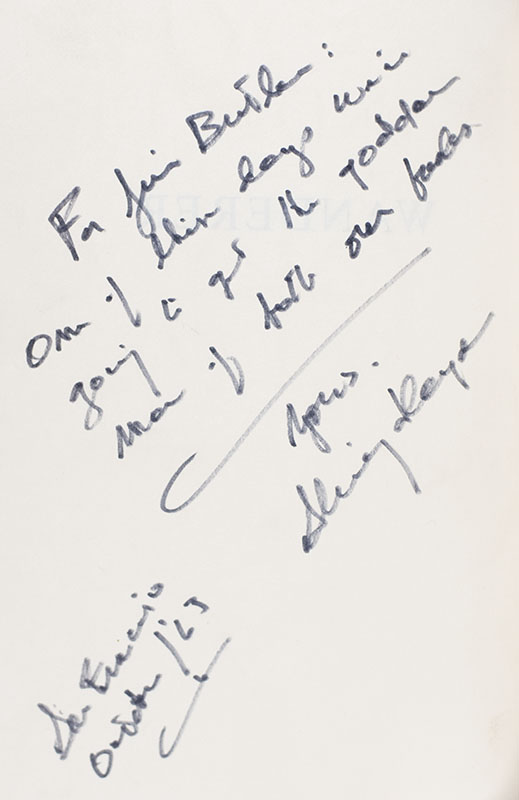 For Jim Butler:
One of these days we're
going to get the goddam
man of both our
Yours.
Sterling Hayden
San Francisco
October /'63
WANDERER